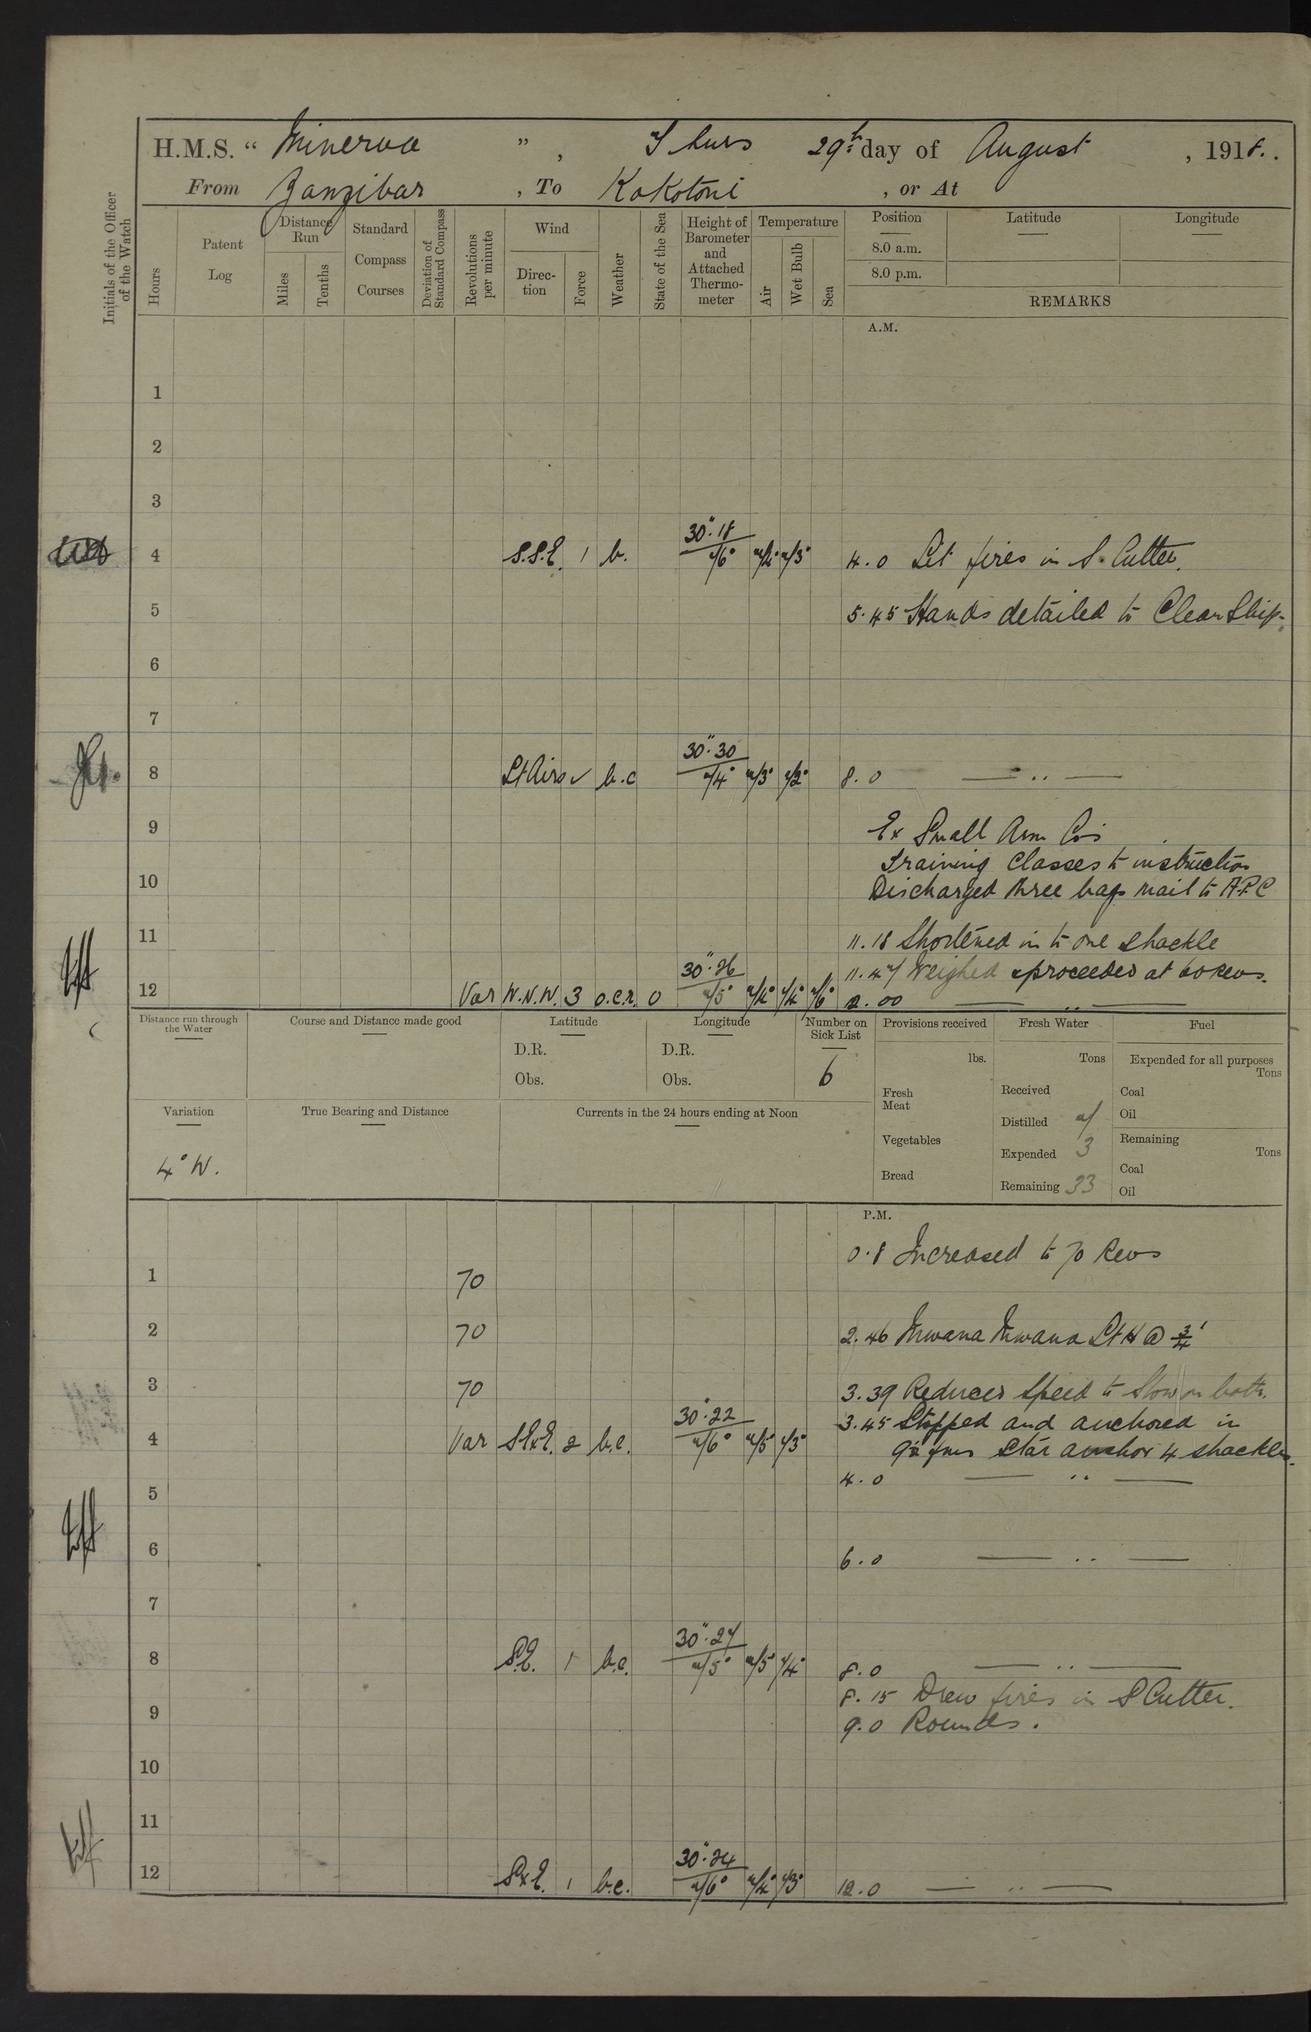 H.M.S. “ Minerva ” , Thurs 29th day of August , 1918.
From Zanzibar , To Kokotoni , or At
Initials of the Officer of the Watch
Hours
Patent Log
Distance Run
Miles
Tenths
Standard Compass Courses
Deviation of Standard Compass
Revolutions per minute
Wind
Direction
Force
Weather
State of the Sea
Height of Barometer and Attached Thermometer
Temperature
Air
Wet Bulb
Sea
Position Latitude Longitude
8.0 a.m.
8.0 p.m.
REMARKS
A.M.
1
2
3
4 S.S.E. 1 b. 30".18 / 76° 72° 73° 4.0 Lit fires in S. Cutter.
5 5.45 Hands detailed to Clean Ship.
6
7
8 Lt Airs b.c 30".30 / 74° 73° 72° 8.0 — ·· —
9 Ex Small Arm Cos
Training Classes to instruction
10 Discharged three bags mail to A.P.C
11 11.18 Shortened in to one shackle
11.47 Weighed & proceeded at 60 revs.
12 Var W.N.W. 3 o.c.r. 0 30".26 / 75° 74° 74° 76° 12.00 — ·· —
Distance run through the Water
Course and Distance made good
Latitude
D.R.
Obs.
Longitude
D.R.
Obs.
Number on Sick List
6
Provisions received
lbs.
Fresh Meat
Vegetables
Bread
Fresh Water
Tons
Received
Distilled 7
Expended 3
Remaining 33
Fuel
Expended for all purposes
Tons
Coal
Oil
Remaining
Tons
Coal
Oil
Variation
4° W.
True Bearing and Distance
Currents in the 24 hours ending at Noon
P.M.
0.8 Increased to 70 Revs
1 70
2 70 2.46 Mwana Mwana Lt H @ 3/4'
3 70 3.39 Reduced Speed to Slow on both.
3.45 Stopped and anchored in
4 Var SExE. 2 b.c. 30".22 / 76° 75° 73° fms Star anchor 4 shackles.
4.0 — ·· —
5
6 6.0 — ·· —
7
8 S.E. 1 b.c. 30".27 / 75° 75° 74° 8.0 — ·· —
8.15 Drew fires in S Cutter.
9 9.0 Rounds.
10
11
12 SxE. 1 b.c. 30".24 / 76° 74° 73° 12.0 — ·· —